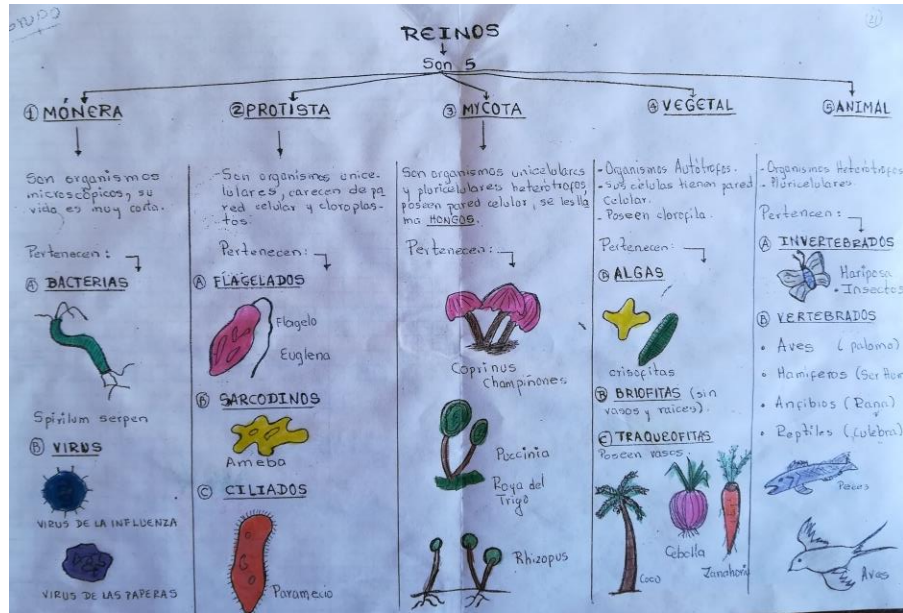 REINOS
Son 5
① MÓNERA
Son organismos
microscópicos, su
vida es muy corta.
Pertenecen:
Ⓐ BACTERIAS
Spirilum serpen
Ⓑ VIRUS
VIRUS DE LA INFLUENZA
VIRUS DE LAS PAPERAS
② PROTISTA
-Son organismos unice-
lulares, carecen de pa
red celular y cloroplas-
tos.
Pertenecen:
Ⓐ FLAGELADOS
Flagelo
Euglena
Ⓑ SARCODINOS
Ameba
Ⓒ CILIADOS
Paramecio
③ MYCOTA
Son organismos unicelulares
y pluricelulares heterótrofos
poseen pared celular, se les lla
ma HONGOS.
Pertenecen:
Coprinus
Champiñones
Puccinia
Roya del
Trigo
Rhizopus
④ VEGETAL
-Organismos Autótrofos.
- sus células tienen pared
Celular.
- Poseen clorofila.
Pertenecen:
ALGAS
crisofitas
Ⓑ BRIOFITAS (sin
vasos y raices).
Ⓒ TRAQUEOFITAS
Poseen vasos.
Coco
Cebolla
Zanahoria
⑤ ANIMAL
- Organismos Heterótrofos
- Pluricelulares
Pertencen:
Ⓐ INVERTEBRADOS
Mariposa
• Insectos
Ⓑ VERTEBRADOS
• Aves (palomo)
• Mamiferos (Ser
• Anfibios (Rana)
• Reptiles (culebra)
Peces
Aves